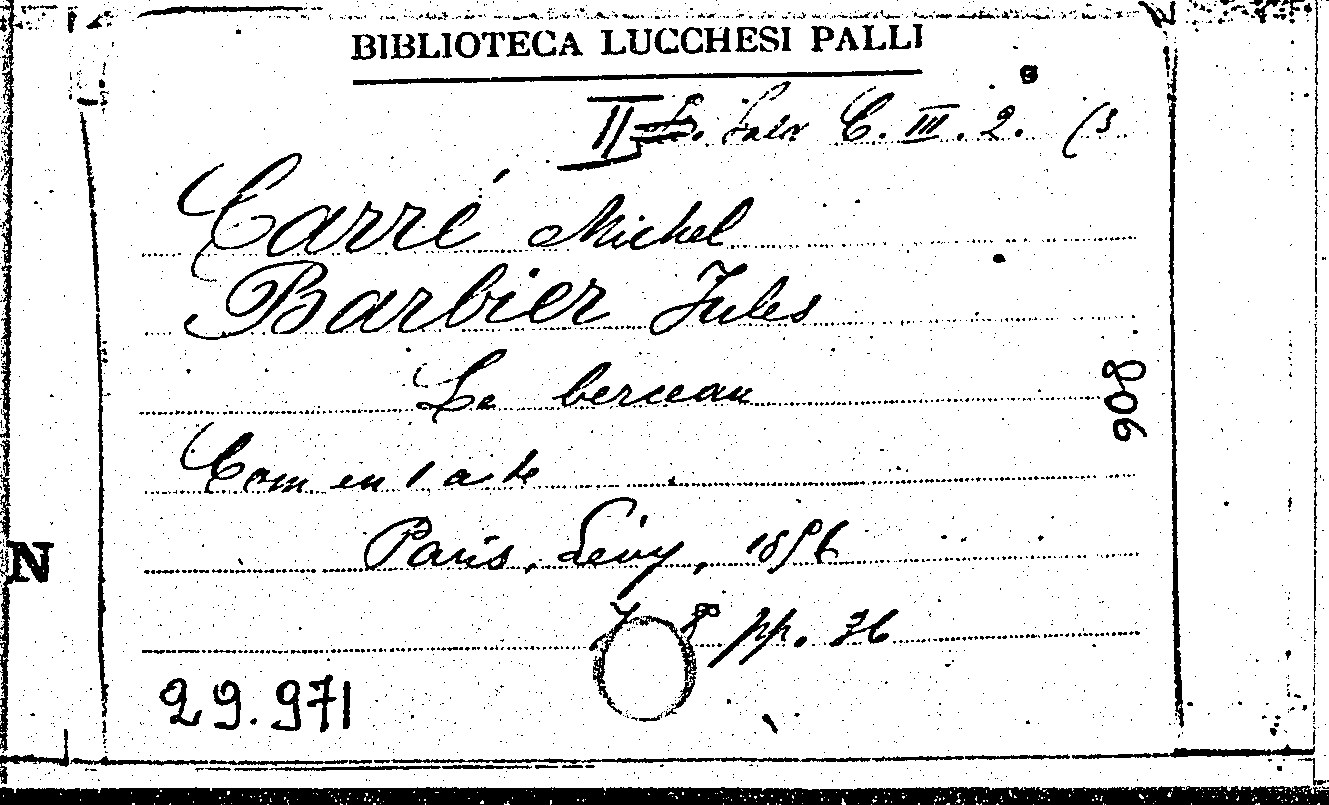 BIBLIOTECA LUCCHESI PALLI
II Sala C. III. 2. (3
Carré Michel
Barbier Jules
Le berceau
Com en 1 acte
Paris, Levy, 1856
8º pp. 36
29.971
908
N